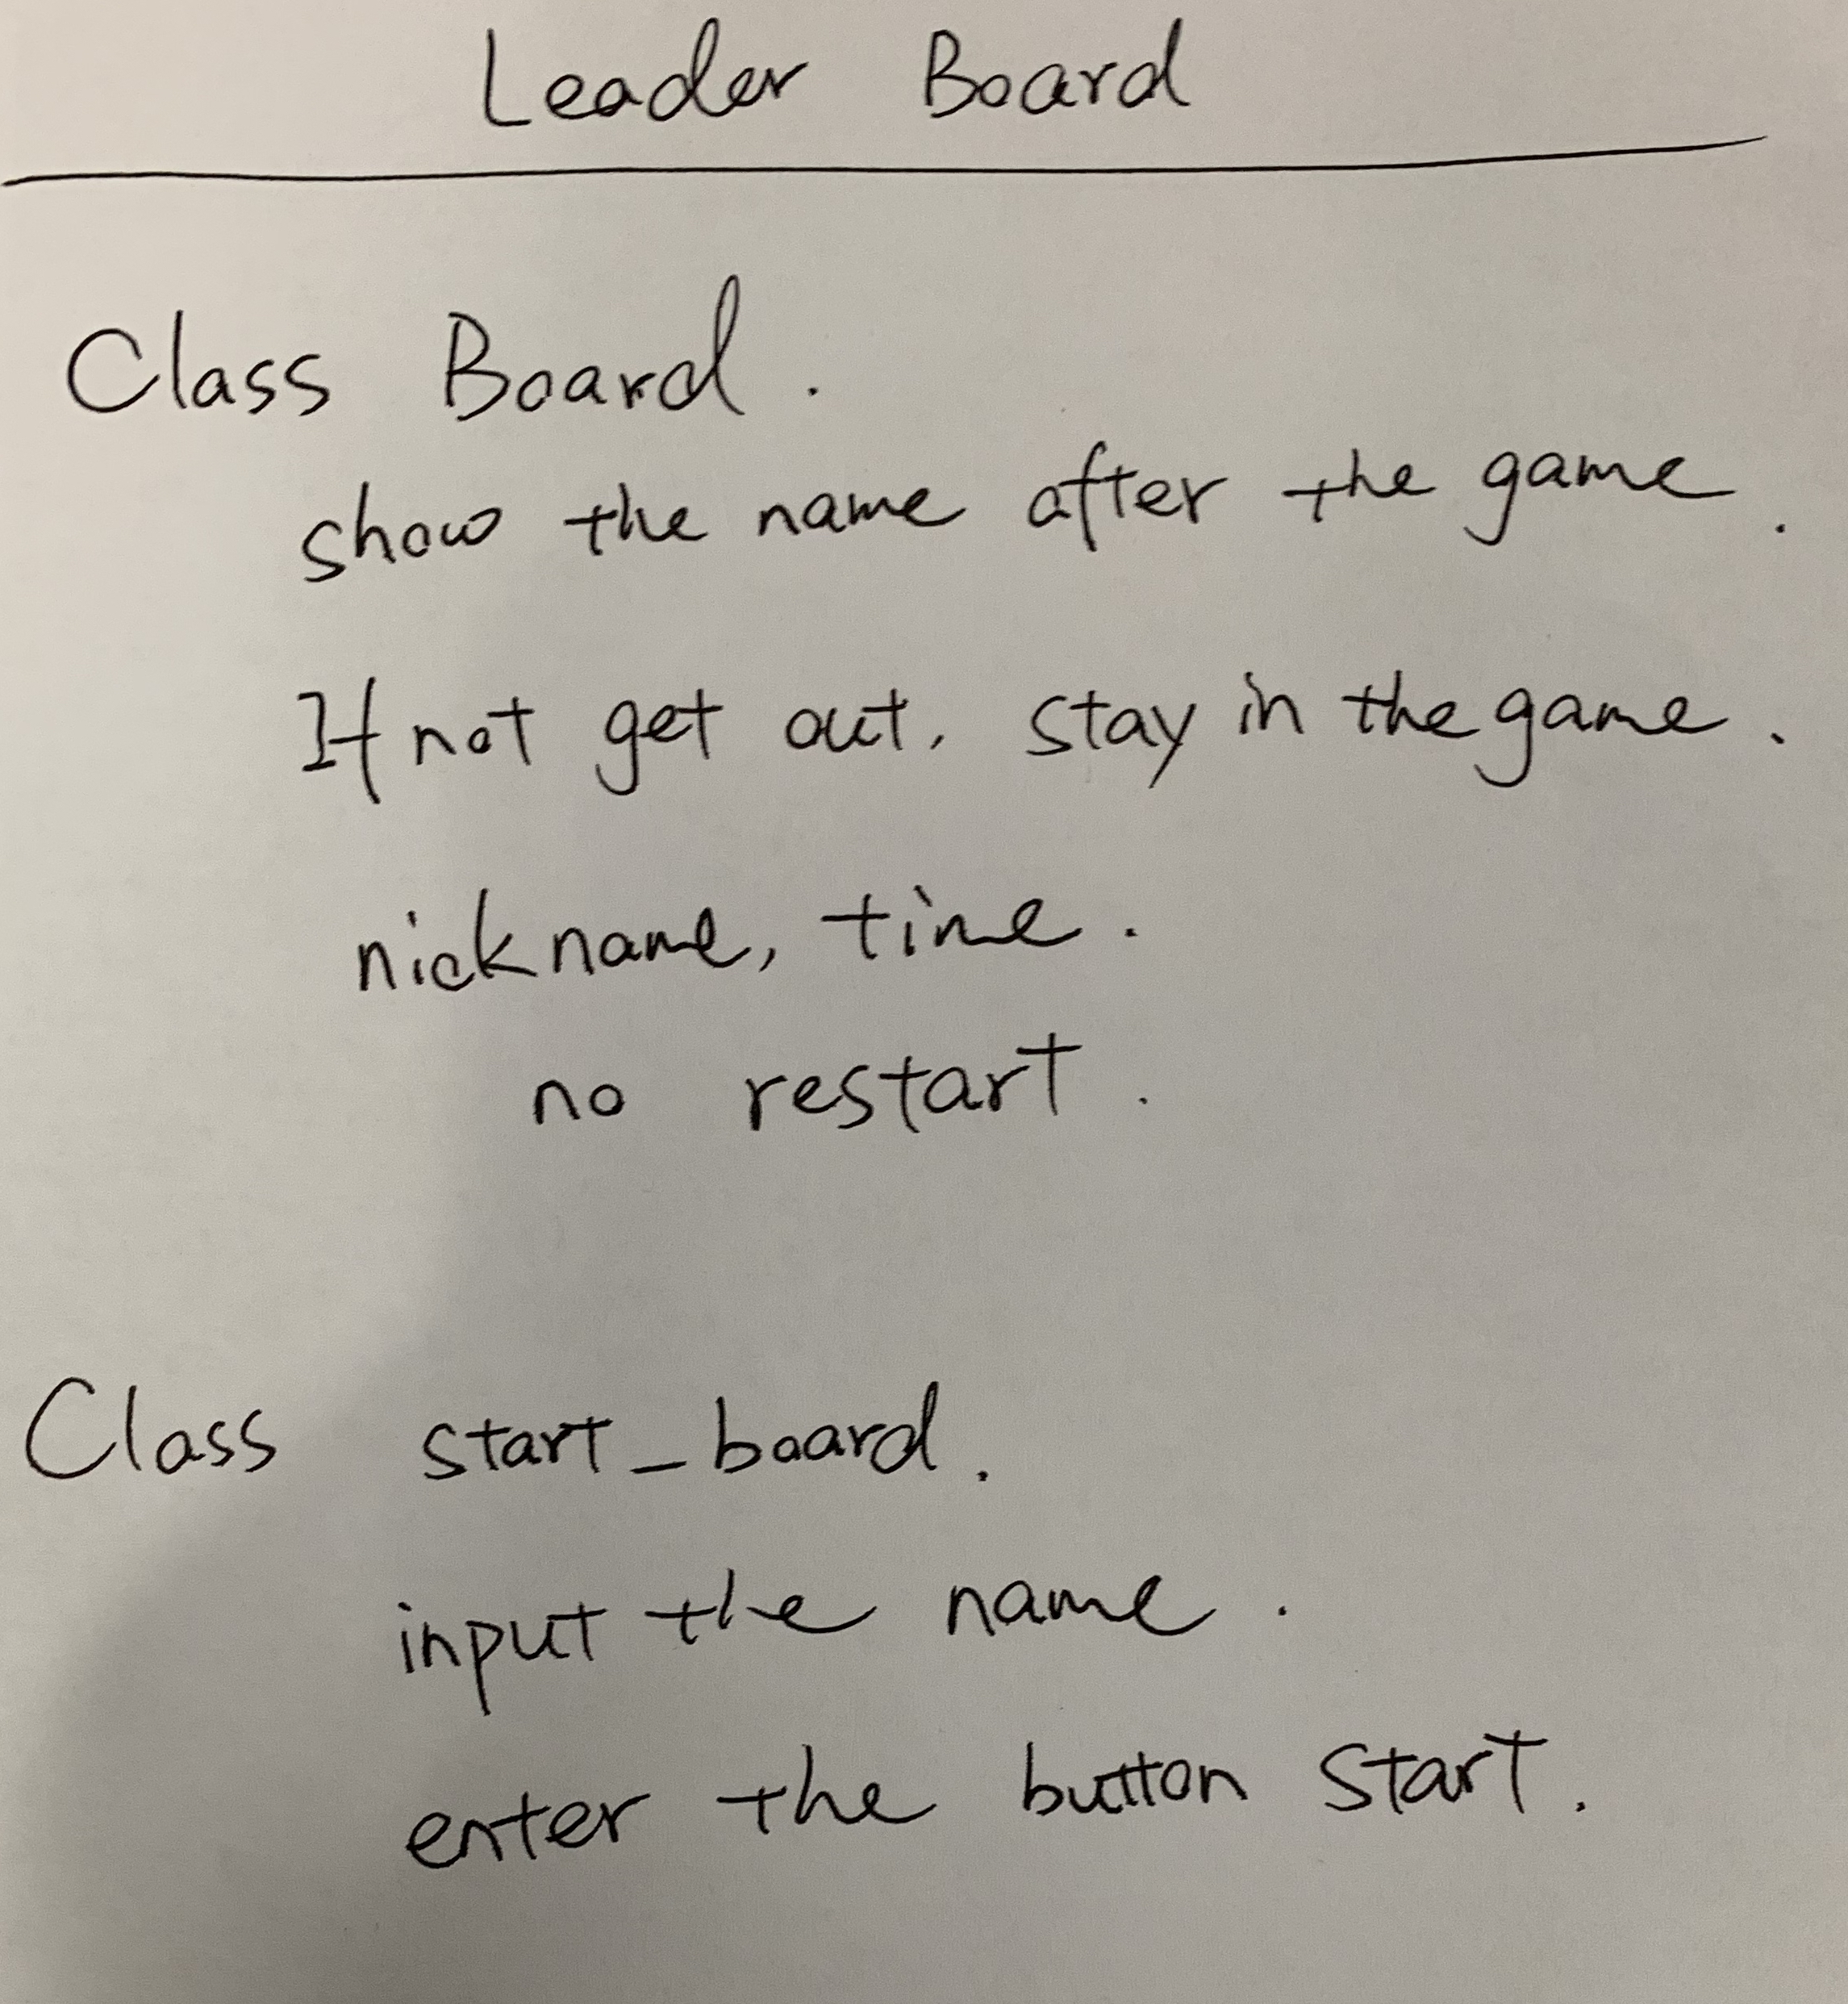 Leader Board
Class Board.
show the name after the game.
If not get out, stay in the game.
nickname, time.
no restart.
Class start_board.
input the name.
enter the button start.